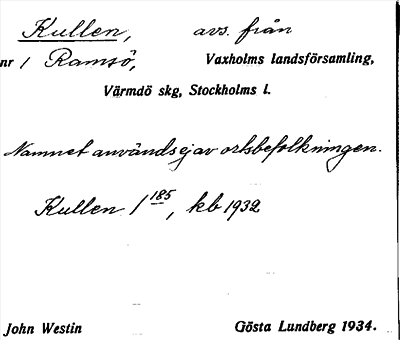 Kullen, avs. från
nr 1 Ramsö, Vaxholms landsförsamling,
Värmdö skg, Stockholms l.
Namnet användes ej av ortsbefolkningen.
Kullen 1 185, kb 1932
John Westin Gösta Lundberg 1934.